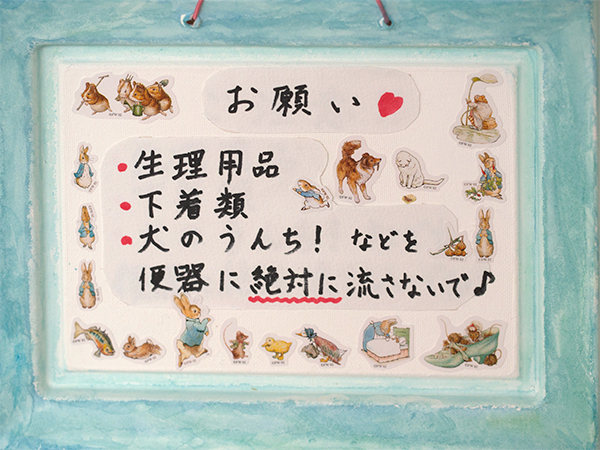 お願い
・生理用品
・下着類
・犬のうんち! などを
便器に絶対に流さないで♪